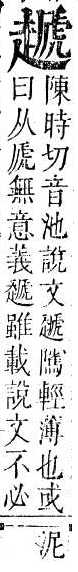 䞾
陳時切音池說文䞾輕薄也或
曰从虒無意義䞾雖載說文不必
泥